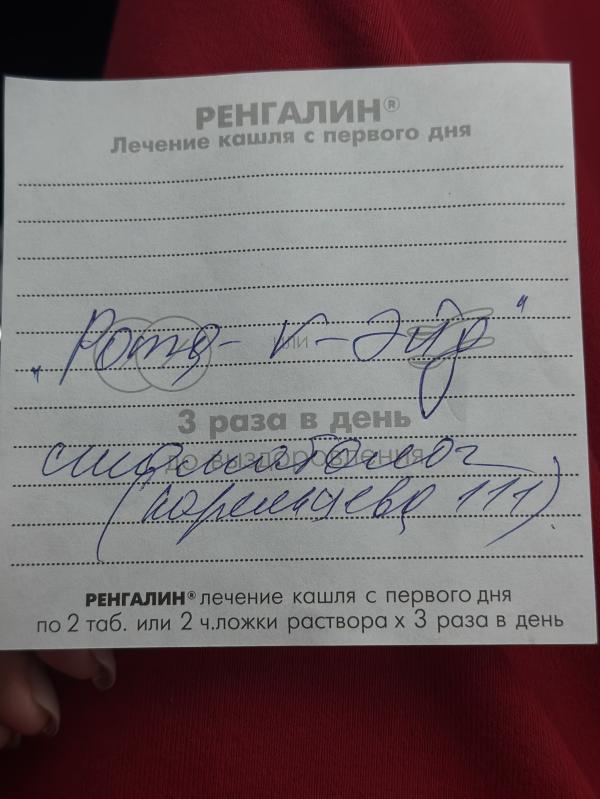 РЕНГАЛИН®
Лечение кашля с первого дня
"Рота-V-Эйд"
или
3 раза в день
по выздоровления
(Карельцева 111)
РЕНГАЛИН® лечение кашля с первого дня
по 2 таб. или 2 ч.ложки раствора х 3 раза в день